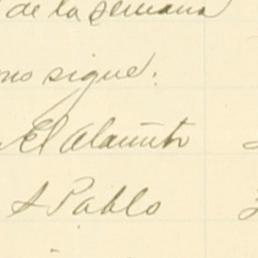 de la semana
mo sigue:
El Alamito
S Pablo